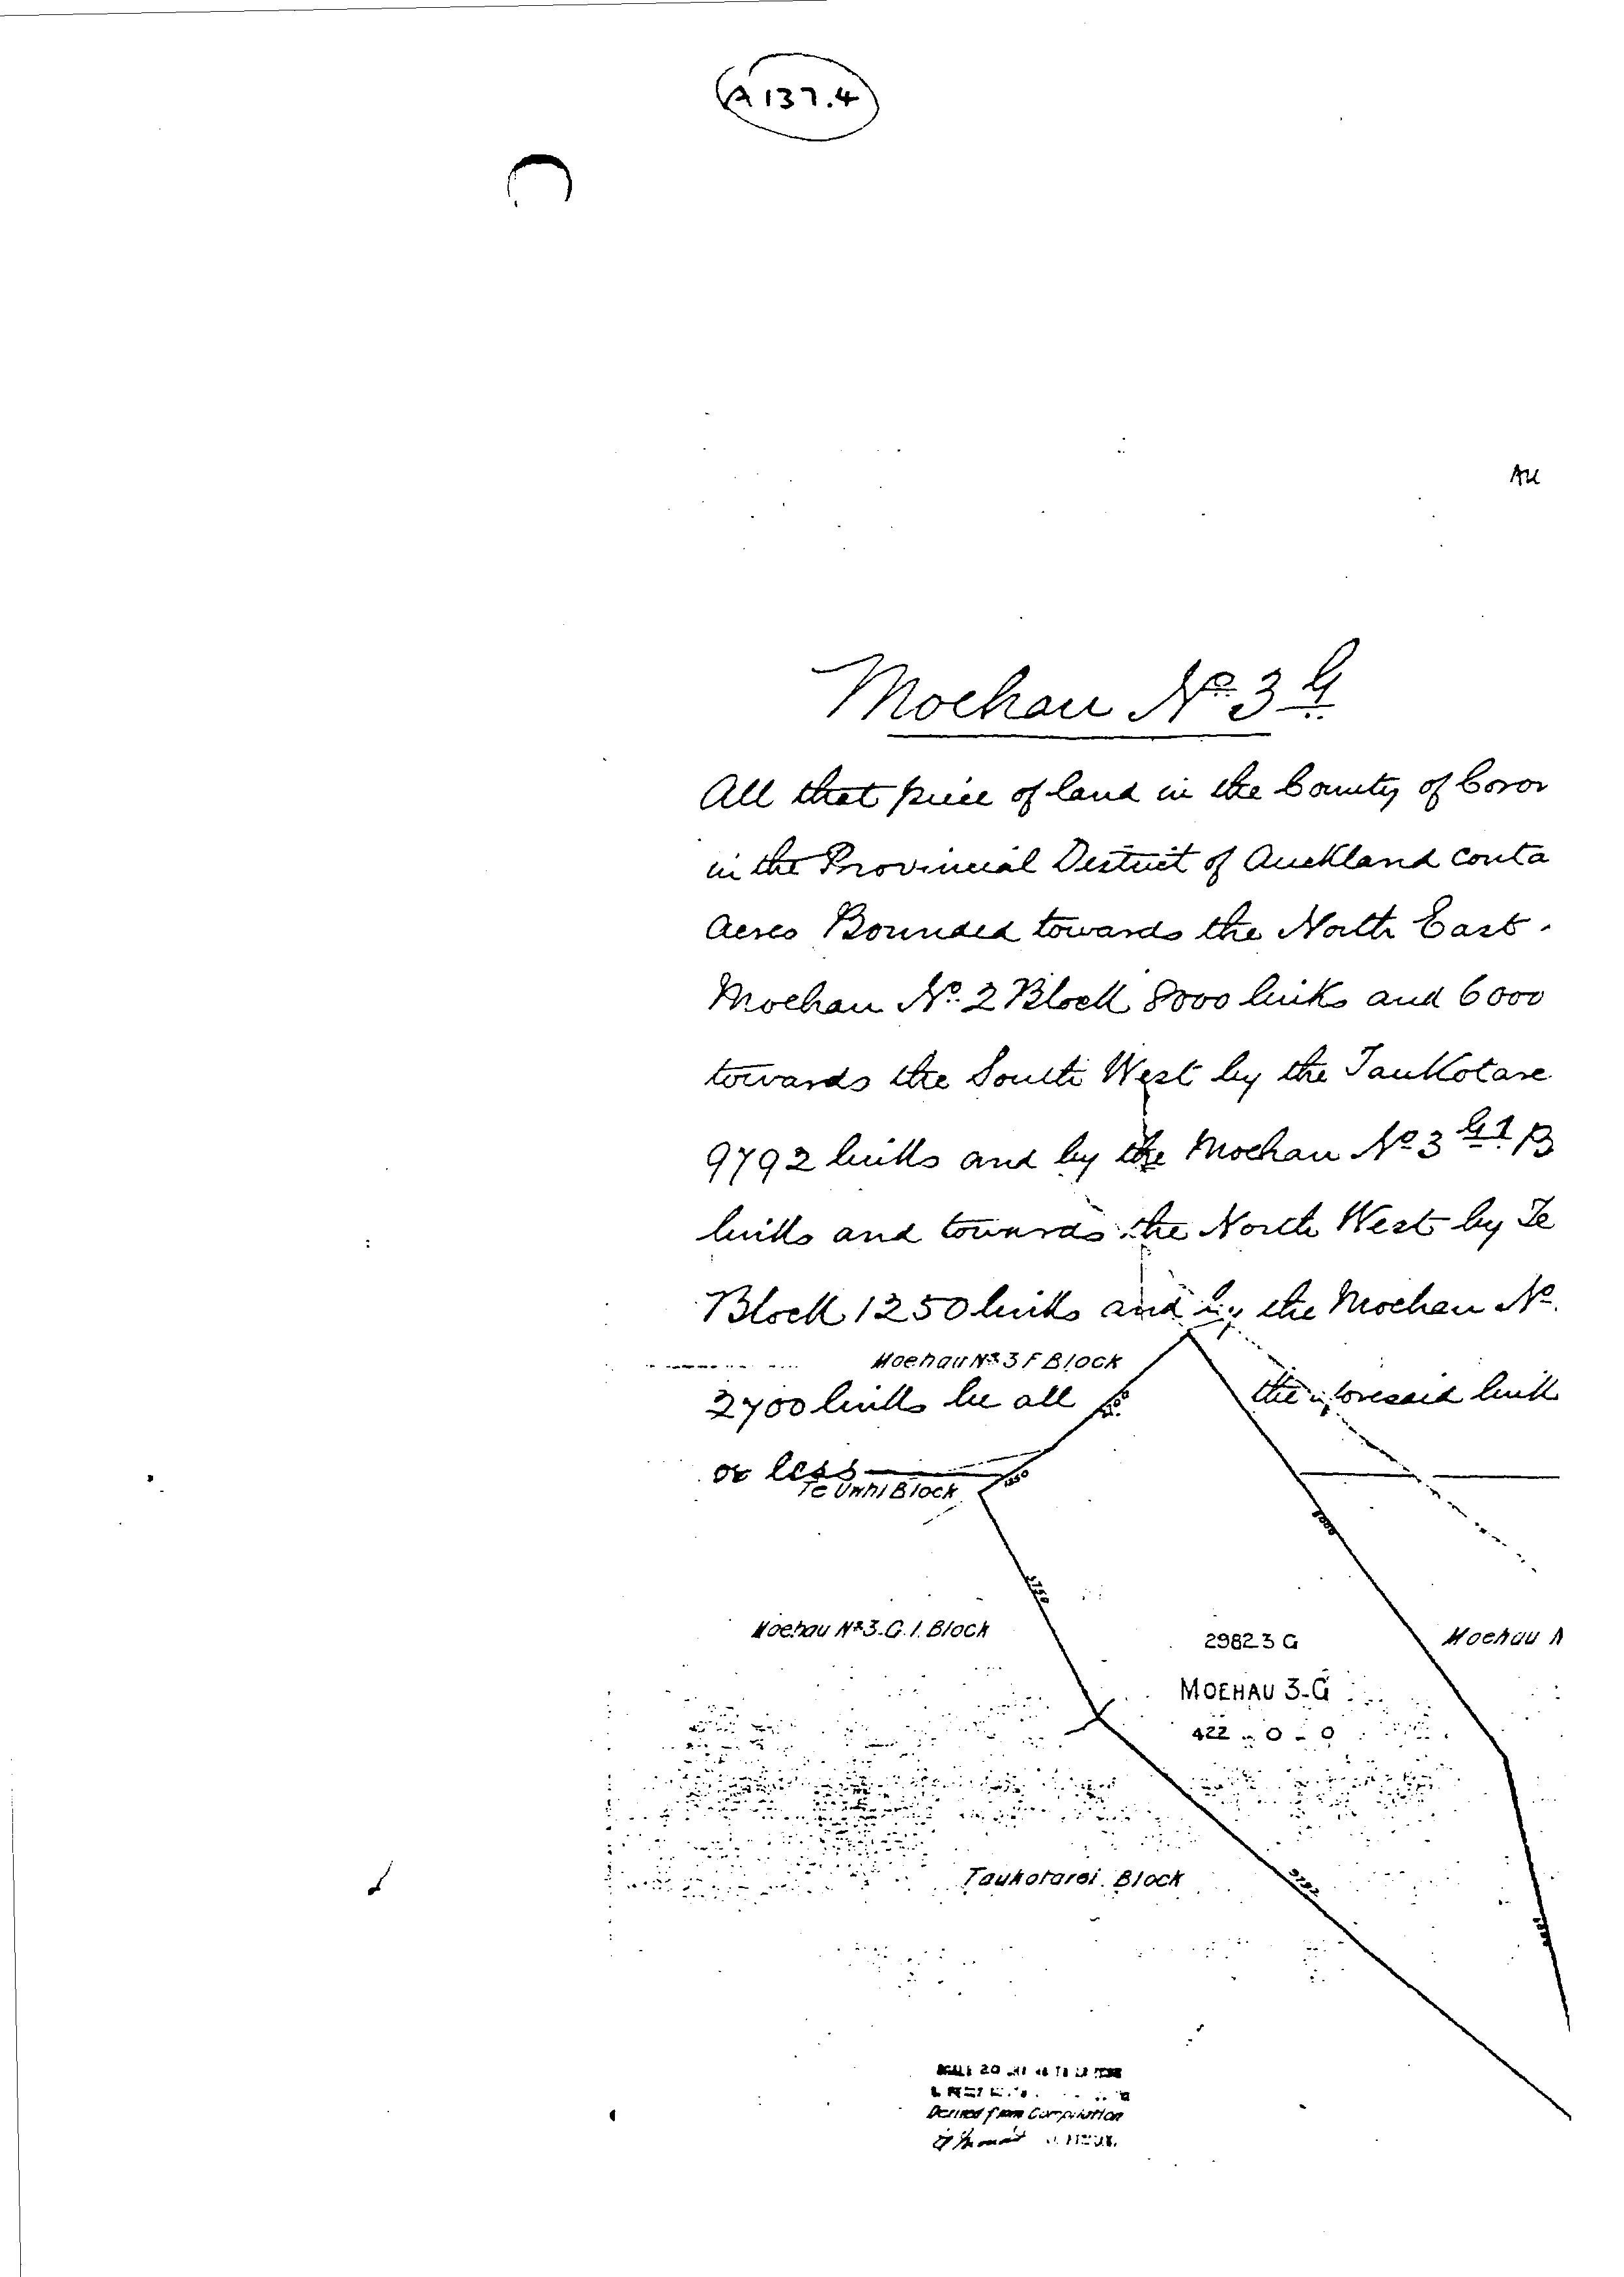 A137.4
Au
Moehau No. 3 G
All that piece of land in the County of Coro
in the Provincial District of Auckland conta
acres Bounded towards the North East
Moehau No. 2 Block 8000 links and 6000
towards the South West by the Taukotare
9792 links and by the Moehau No 3 G1 B
links and towards the North West by Te
Block 1250 links and by the Moehau No.
Moehau No 3 F Block
2700 links be all the aforesaid link
or less
Te Unhi Block
1250
8000
3750
Moehau No 3-G.1. Block
2982 3 G
Moehau N
MOEHAU 3-G
422 - 0 - 0
Taukotarei Block
9792
6000
SCALE 20
Derived from Compilation